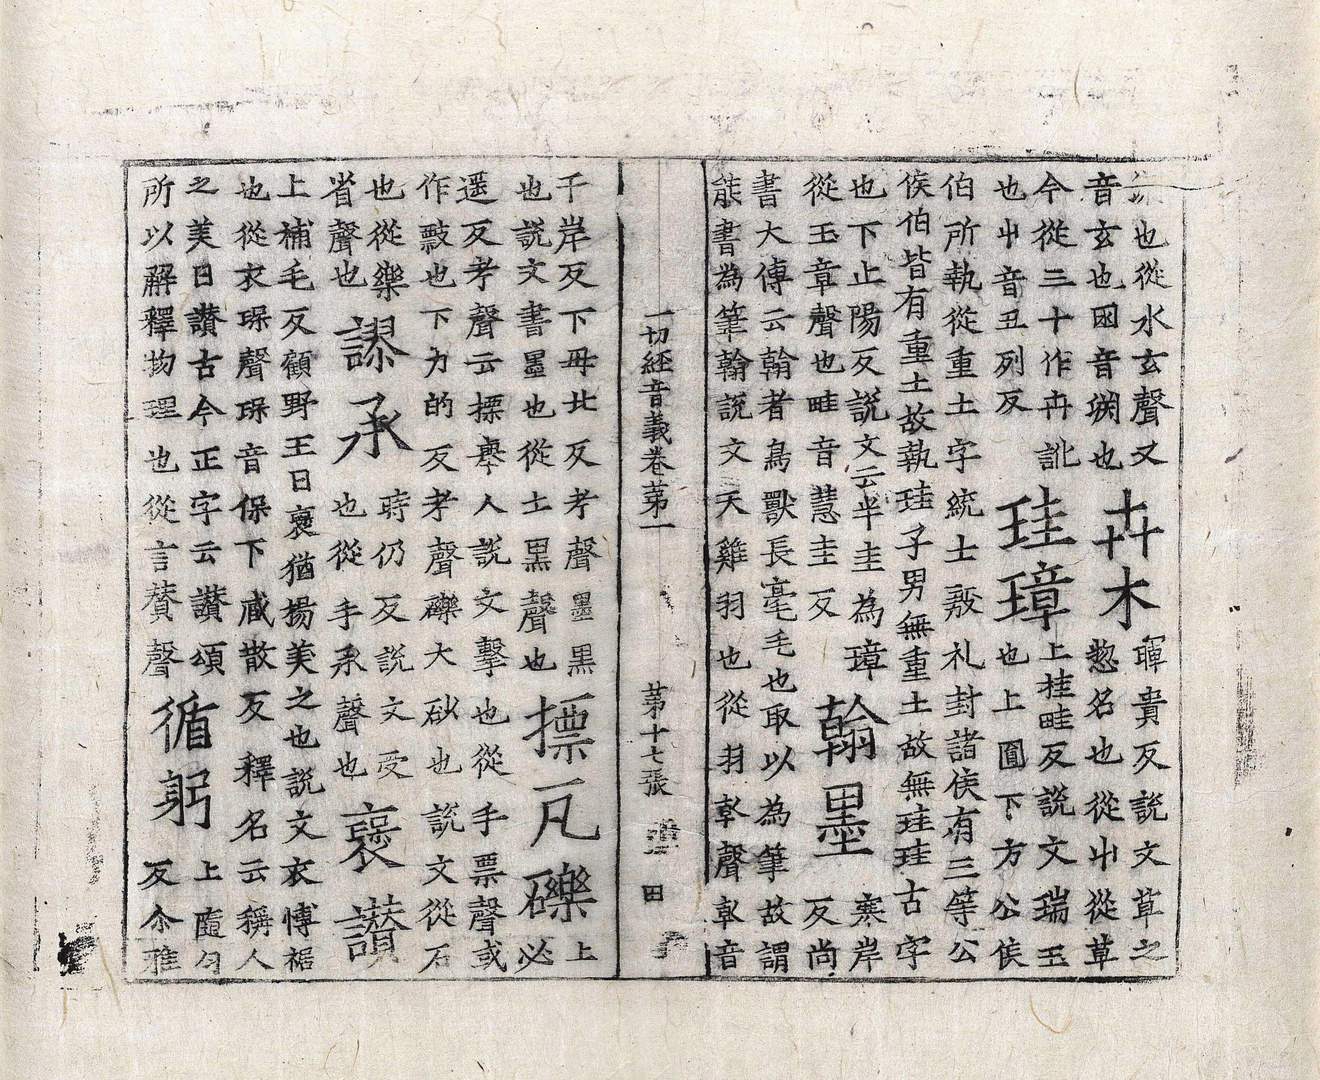 也從水玄聲又
音玄也困音渕也
卉木
暉貴反說文草之
惣名也從屮從草
今從三十作卉訛
也屮音丑列反
珪璋
上桂畦反說文瑞玉
也上圓下方公侯
伯所執從重土字統士敠礼封諸侯有三等公
侯伯皆有重土故執珪子男無重土故無珪珪古字
也下止陽反說文云半圭為璋
從玉章聲也畦音慧圭反
翰墨
寒岸
反尚
書大傳云翰者鳥獸長毫毛也取以為筆故謂
能書為筆翰說文天雞羽也從羽倝聲倝音
一切經音義卷苐一 苐十七張 田
千岸反下毋北反考聲墨黒
也說文書墨也從土黒聲也
摽凡礫
上
必
遥反考聲云摽舉人說文擊也從手票聲或
作敼也下力的反考聲礫大砂也說文從石
也從樂
省聲也
謬承
時仍反說文受
也從手氶聲也
褒讃
上補毛反顧野王曰褒猶揚美之也說文衣博裾
也從衣㻄聲㻄音保下臧散反釋名云稱人
之美曰讃古今正字云讃頌
所以解釋物理也從言賛聲
循躬
上隨勻
反尒雅